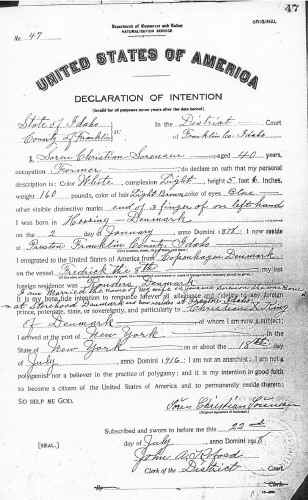 47
Department of Commerce and Labor
ORIGINAL
NATURALIZATION SERVICE
No. 47
UNITED STATES OF AMERICA
DECLARATION OF INTENTION
(Invalid for all purposes seven years after the date hereof)
State of Idaho
In the District Court
County of Franklin ss:
of Franklin Co. Idaho
I, Soren Christian Sorensen, aged 40 years,
occupation Farmer, do declare on oath that my personal
description is: Color White, complexion Light, height 5 feet inches,
weight 160 pounds, color of hair Light Brown, color of eyes Blue
other visible distinctive marks end of a finger off on left hand
I was born in Denmark
on the 2 day of January, anno Domini; I now reside
at Preston Franklin County Idaho
I emigrated to the United States of America from Copenhagen Denmark
on the vessel Fredrick the 8th; my last
foreign residence was Denmark
It is my bona fide intention to renounce forever all allegiance and fidelity to any foreign
prince, potentate, state, or sovereignty, and particularly to Christian King
of Denmark, of whom I am now a subject;
I arrived at the port of New York, in the
State of New York on or about the 18th day
of July, anno Domini 1916; I am not an anarchist; I am not a
polygamist nor a believer in the practice of polygamy; and it is my intention in good faith
to become a citizen of the United States of America and to permanently reside therein:
SO HELP ME GOD.
Soren Christian Sorensen
(Original signature of declarant)
Subscribed and sworn to before me this 22nd
[SEAL.] day of July, anno Domini
John A.
Clerk of the District Court.